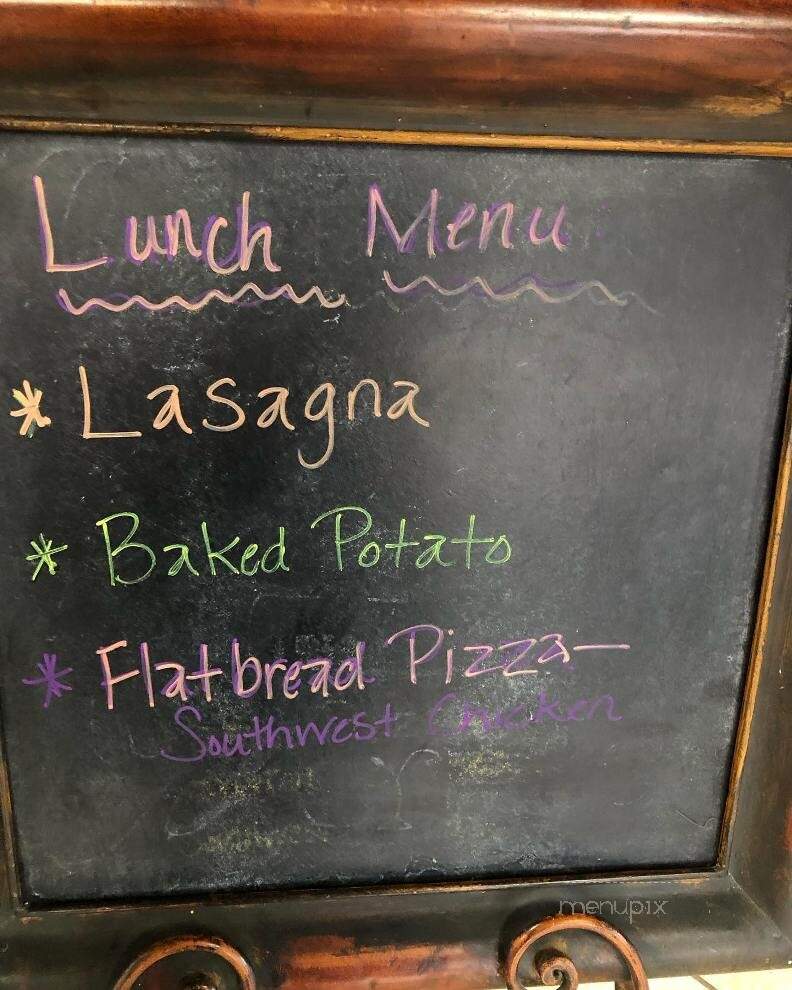 Lunch Menu
* Lasagna
* Baked Potato
* Flatbread Pizza—
Southwest Chicken
menupix